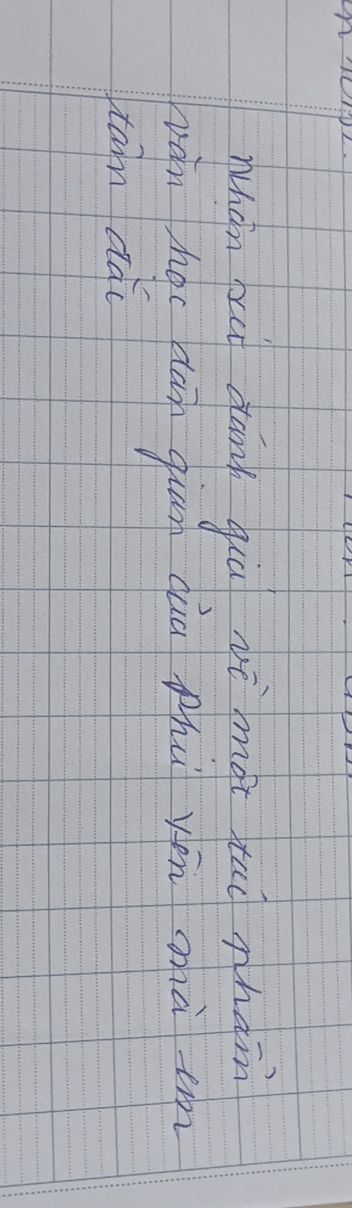 Nhận xét đánh giá về một tác phẩm
văn học dân gian của Phú Yên mà em
tâm đắc